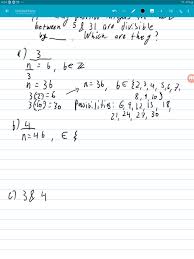 between 5 & 31 are divisible
by ____. Which are they?
a) 3
n/3 = b, b∈ℤ
n = 3b → n = 3b, b∈{2, 3, 4, 5, 6, 7,
3(2) = 6 8, 9, 10}
3(10) = 30 Possibilities: 6, 9, 12, 15, 18,
21, 24, 27, 30
b) 4
n = 4b, ∈ {
c) 3 & 4